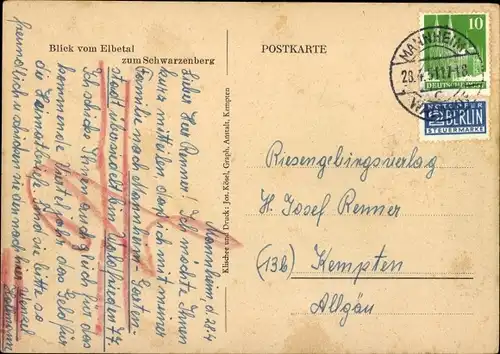 Blick vom Elbetal
zum Schwarzenberg
POSTKARTE
Mannheim, d. 28.4
Lieber Herr Renner! Ich möchte Ihnen
kurz mitteilen das ich mit meiner
Familie nach Mannheim-Garten-
stadt übersiedelt bin
Ich schicke Ihnen auch gleich für das
kommende Viertel Jahr das Geld für
die Heimatbriefe. Sind sie bitte so
freundlich u. schicken sie den nach hier.
Klischee und Druck: Jos. Kösel, Graph. Anstalt, Kempten
MANNHEIM
10
DEUTSCHE POST
NOTOPFER
2 BERLIN
STEUERMARKE
Riesengebirgsverlag
H. Josef Renner
(13b) Kempten
Allgäu